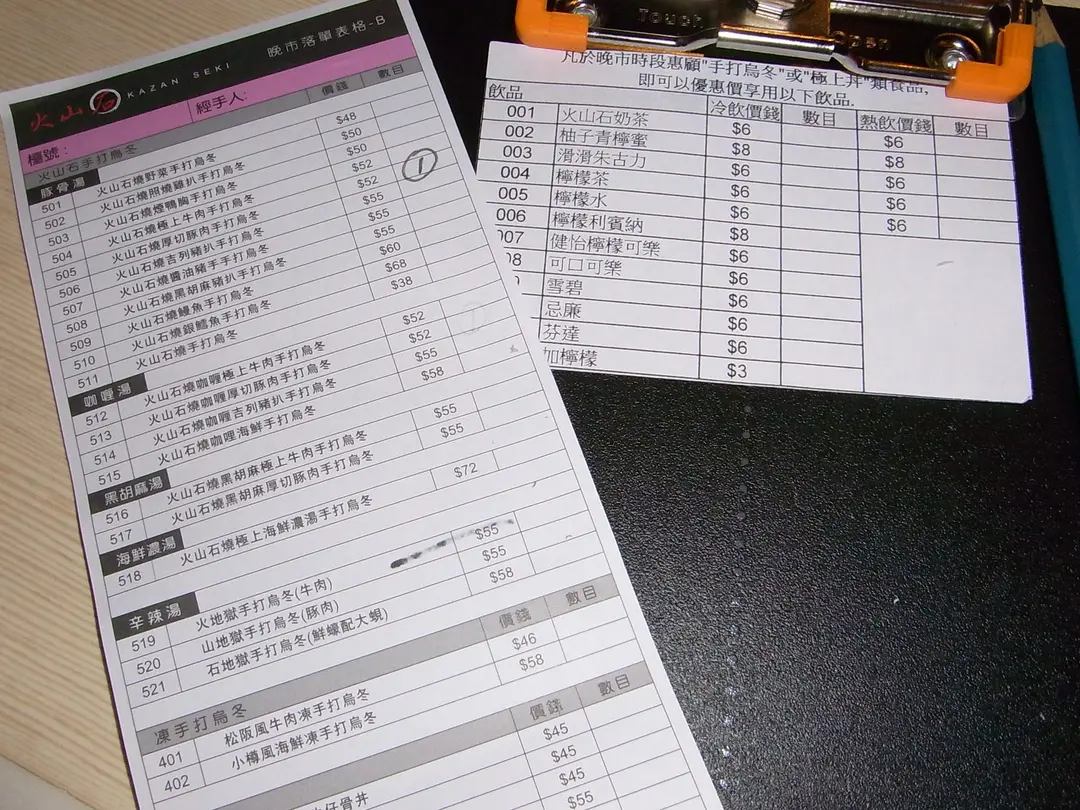 火山石 KAZAN SEKI 晚市落單表格-B
檯號： 經手人:
火山石手打烏冬 價錢 數目
豚骨湯
501 火山石燒野菜手打烏冬 $48
502 火山石燒照燒雞扒手打烏冬 $50
503 火山石燒煙鴨胸手打烏冬 $50
504 火山石燒極上牛肉手打烏冬 $52 1
505 火山石燒厚切豚肉手打烏冬 $52
506 火山石燒吉列豬扒手打烏冬 $55
507 火山石燒醬油豬手手打烏冬 $55
508 火山石燒黑胡麻豬扒手打烏冬 $55
509 火山石燒鰻魚手打烏冬 $60
510 火山石燒銀鱈魚手打烏冬 $68
511 火山石燒手打烏冬 $38
咖喱湯
512 火山石燒咖喱極上牛肉手打烏冬 $52
513 火山石燒咖喱厚切豚肉手打烏冬 $52
514 火山石燒咖喱吉列豬扒手打烏冬 $55
515 火山石燒咖哩海鮮手打烏冬 $58
黑胡麻湯
516 火山石燒黑胡麻極上牛肉手打烏冬 $55
517 火山石燒黑胡麻厚切豚肉手打烏冬 $55
海鮮濃湯
518 火山石燒極上海鮮濃湯手打烏冬 $72
辛辣湯
519 火地獄手打烏冬(牛肉) $55
520 山地獄手打烏冬(豚肉) $55
521 石地獄手打烏冬(鮮蠔配大蜆) $58
凍手打烏冬 價錢 數目
401 松阪風牛肉凍手打烏冬 $46
402 小樽風海鮮凍手打烏冬 $58
價錢 數目
$45
$45
仔骨丼 $45
$55
Touch Open
凡於晚市時段惠顧"手打烏冬"或"極上丼"類食品,
即可以優惠價享用以下飲品.
飲品 冷飲價錢 數目 熱飲價錢 數目
001 火山石奶茶 $6 $6
002 柚子青檸蜜 $8 $8
003 滑滑朱古力 $6 $6
004 檸檬茶 $6 $6
005 檸檬水 $6 $6
006 檸檬利賓納 $8
007 健怡檸檬可樂 $6
08 可口可樂 $6
雪碧 $6
忌廉 $6
芬達 $6
加檸檬 $3